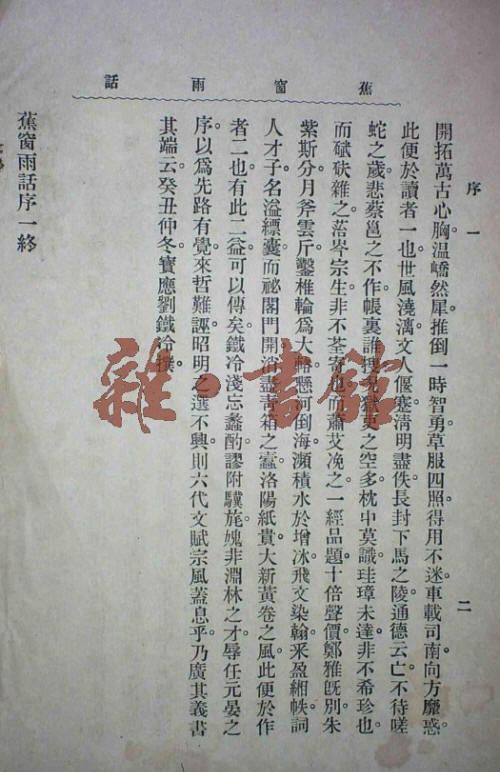 蕉窗雨話
序一
二
開拓萬古心胸。温嶠然犀。推倒一時智勇。草服四照。得用不迷。車載司南。向方靡惑。
此便於讀者一也。世風澆漓。文人偃蹇。清明盡佚。長封下馬之陵。通德云亡。不待嗟
蛇之歲。悲蔡邕之不作。帳裏誰搜。兄獄吏之空多。枕中莫識。珪璋未達。非不希珍也。
而碔砆雜之。菭岑宗生。非不荃寄也。而蕭艾凂之。一經品題。十倍聲價。鄭雅旣別。朱
紫斯分。月斧雲斤。鑿椎輪爲大輅。懸河倒海。瀕積水於增冰。飛文染翰。采盈緗帙。詞
人才子。名溢縹囊。而祕閣門開。消盡靑箱之蠹。洛陽紙貴。大新黃卷之風。此便於作
者二也。有此二益。可以傳矣。鐵冷淺忘蠡酌。謬附驥旄。媿非淵林之才。辱任元晏之
序。以爲先路。有覺來哲。難誣昭明之選不興。則六代文賦宗風。蓋息乎。乃廣其義。書
其端云。癸丑仲冬。寶應劉鐵冷撰。
蕉窗雨話序一終
雜·書館